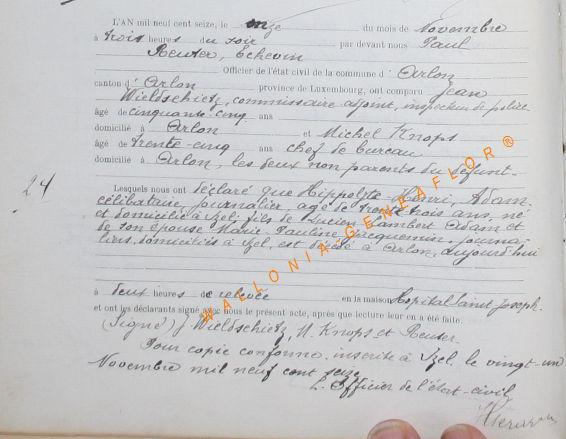 L'AN mil neuf cent seize, le onze du mois de Novembre
à trois heures du soir par devant nous Paul
Reuter, Echevin
Officier de l'état civil de la commune d' Arlon
canton d' Arlon province de Luxembourg, ont comparu Jean
Wieldschietz, commissaire adjoint, inspecteur de police
âgé de cinquante-cinq ans
domicilié à Arlon et Michel Knops
âgé de trente-cinq ans chef de bureau
domicilié à Arlon, les deux non parents du défunt
24
Lesquels nous ont déclaré que Hippolyte Henri, Adam
célibataire, journalier, âgé de trente trois ans, né
et domicilié à Izel, fils de Lucien Lambert Adam et
de son épouse Marie Pauline Jacquemin, journa-
liers, domiciliés à Izel, est décédé à Arlon, aujourd'hui
à deux heures de relevée en la maison Hôpital Saint Joseph.
et ont les déclarants signé avec nous le présent acte, après que lecture leur en a été faite.
(Signé) J. Wieldschietz, M. Knops et Reuter
Pour copie conforme inscrite à Izel, le vingt-un
Novembre mil neuf cent seize
L'Officier de l'état-civil,
WALLONIA-GENEAFLOR ®